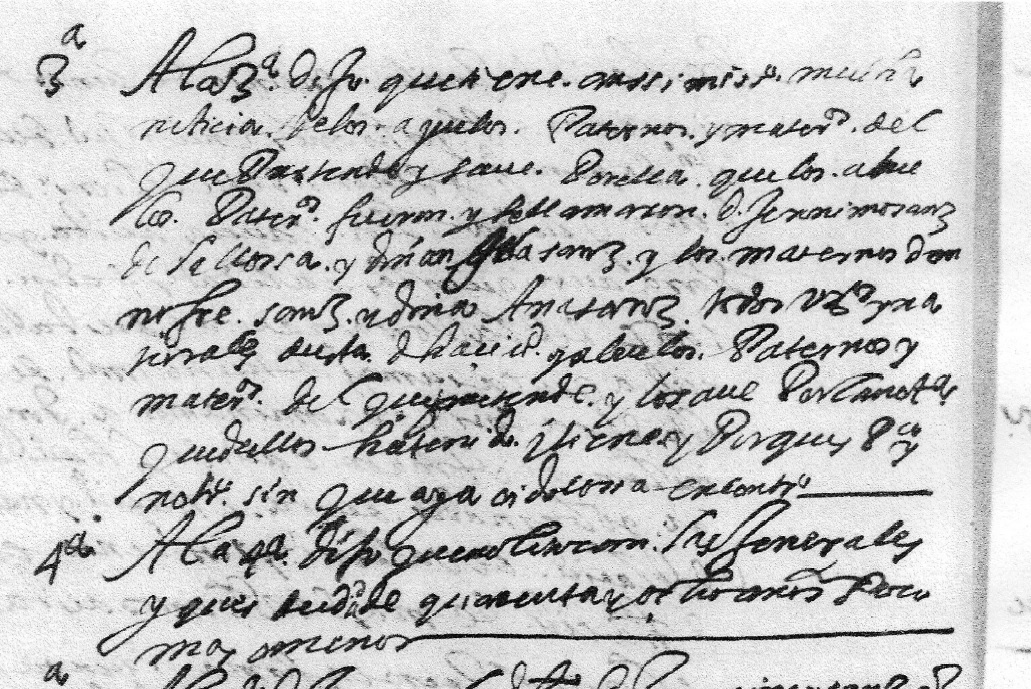 3ª A la 3ª. dijo. que tiene. assimismo. mucha
noticia. de los aguelos. Paternos. y mater^os. del
que Pretende y save. Por ella. que los. abue
los. Pater^os. fueron. y se llamaron. D. Jeronimo sanz
de la llossa. y doña sanz. y los. maternos don
nofre. sanz. y doña Ana sanz. todos vz^os y na
turales desta. dha y abuelos. Paternos y
mater^os. del que pretende. y lo save Por la not^a
que dellos ha tenido. i tiene y Por que es P^co y
not^o. sin que aya oido cosa en cont^o
4ª. A la 4ª. dijo que no le tocan. las generales
y que es de edad de quarenta y ocho años Poco
mas o menos